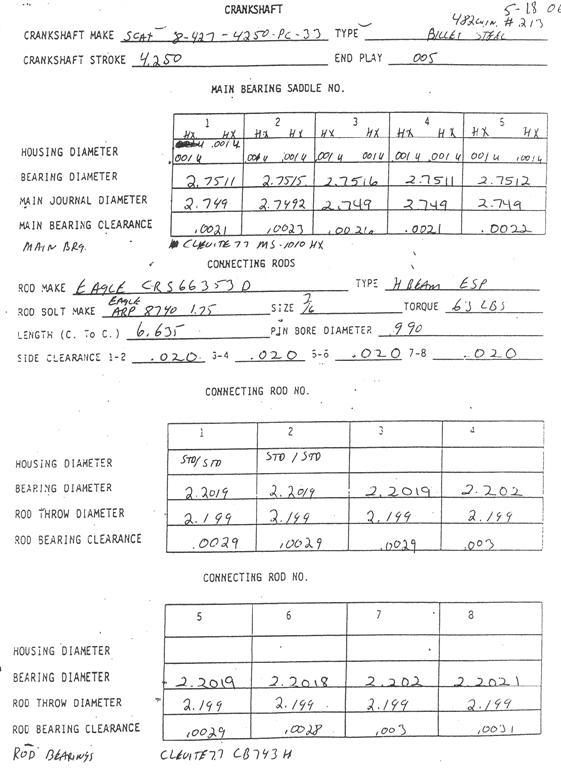 CRANKSHAFT
5-18 06
482 CU.IN. # 213
CRANKSHAFT MAKE SCAT 8-427-4250-PC-33 TYPE BILLET STEEL
CRANKSHAFT STROKE 4.250 END PLAY 005
MAIN BEARING SADDLE NO.
1 2 3 4 5
HX HX HX HX HX HX HX HX HX HX
.0014
HOUSING DIAMETER .0014 .0014 .0014 .0014 .0014 .0014 .0014 .0014
BEARING DIAMETER 2.7511 2.7515 2.7516 2.7511 2.7512
MAIN JOURNAL DIAMETER 2.749 2.7492 2.749 2.749 2.749
MAIN BEARING CLEARANCE .0021 .0023 .0026 .0021 .0022
MAIN BRG. CLEVITE 77 MS-1010 HX
CONNECTING RODS
ROD MAKE EAGLE CRS66353D TYPE H BEAM ESP
EAGLE
ROD BOLT MAKE ARP 8740 1.75 SIZE 7/16 TORQUE 63 LBS
LENGTH (C. To C.) 6.635 PIN BORE DIAMETER .990
SIDE CLEARANCE 1-2 .020 3-4 .020 5-6 .020 7-8 .020
CONNECTING ROD NO.
1 2 3 4
HOUSING DIAMETER STD/STD STD/STD
BEARING DIAMETER 2.2019 2.2019 2.2019 2.202
ROD THROW DIAMETER 2.199 2.199 2.199 2.199
ROD BEARING CLEARANCE .0029 .0029 .0029 .003
CONNECTING ROD NO.
5 6 7 8
HOUSING DIAMETER
BEARING DIAMETER 2.2019 2.2018 2.202 2.2021
ROD THROW DIAMETER 2.199 2.199 2.199 2.199
ROD BEARING CLEARANCE .0029 .0028 .003 .0031
ROD BEARINGS CLEVITE 77 CB743H